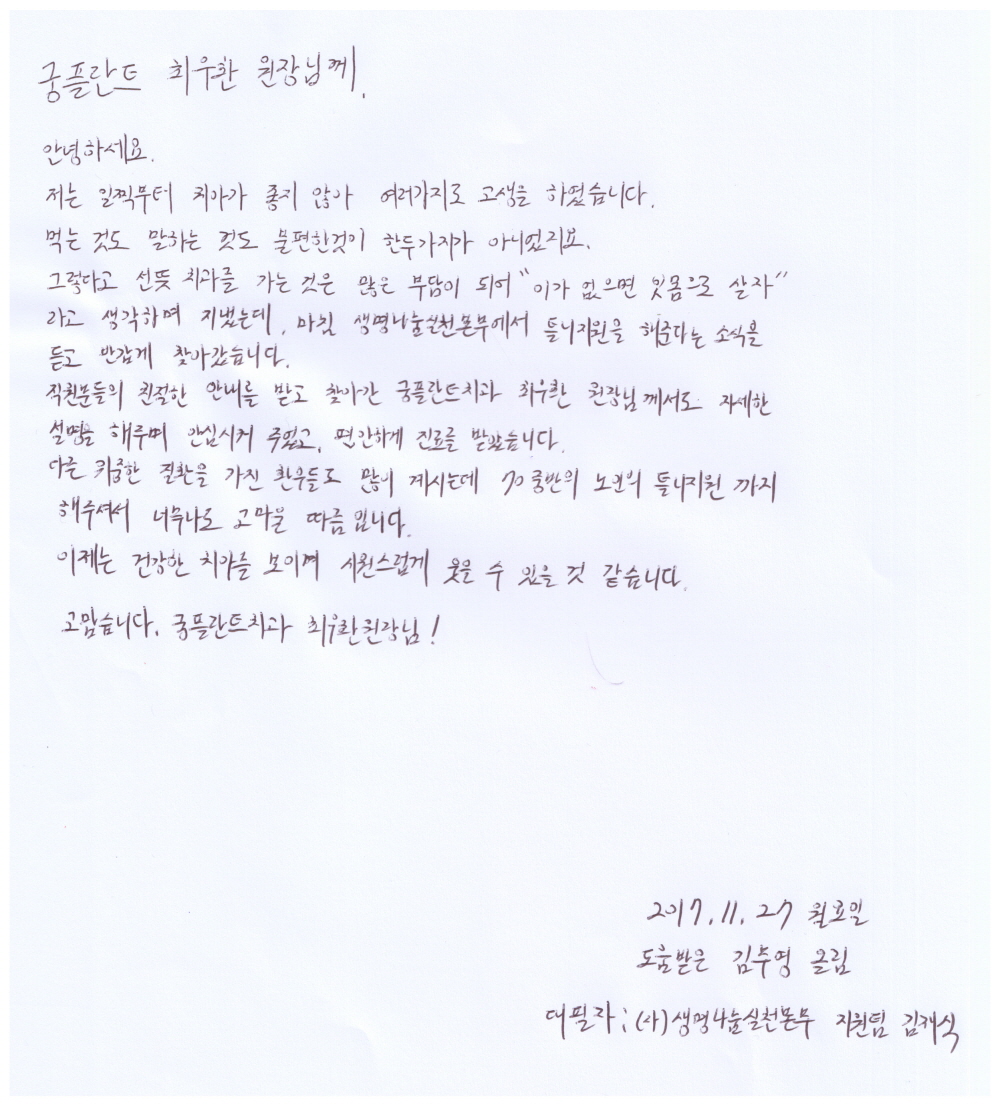 굼플란트 최우환 원장님께.
안녕하세요.
저는 일찍부터 치아가 좋지 않아 여러가지로 고생을 하였습니다.
먹는 것도 말하는 것도 불편한것이 한두가지가 아니었지요.
그렇다고 선뜻 치과를 가는 것은 많은 부담이 되어 "이가 없으면 잇몸으로 살자"
라고 생각하며 지냈는데, 마침 생명나눔실천본부에서 틀니지원을 해준다는 소식을
듣고 반갑게 찾아갔습니다.
직원분들의 친절한 안내를 받고 찾아간 굼플란트치과 최우환 원장님께서도 자세한
설명을 해주며 안심시켜 주었고, 편안하게 진료를 받았습니다.
다른 위중한 질환을 가진 환우들도 많이 계시는데 70중반의 노인의 틀니지원 까지
해주셔서 너무나도 고마울 따름입니다.
이제는 건강한 치아를 보이며 시원스럽게 웃을 수 있을 것 같습니다.
고맙습니다. 굼플란트치과 최우환원장님!
2017.11.27 월요일
도움받은 김수영 올림
대필자 : (사)생명나눔실천본부 지원팀